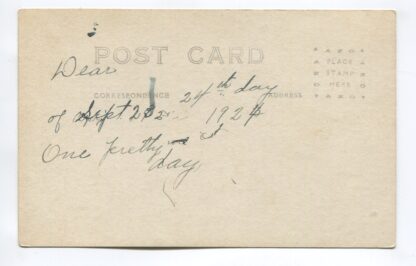 POST CARD
AZO
PLACE
STAMP
HERE
AZO
CORRESPONDENCE
ADDRESS
Dear
24th day
of Sept 1924
One pretty
day